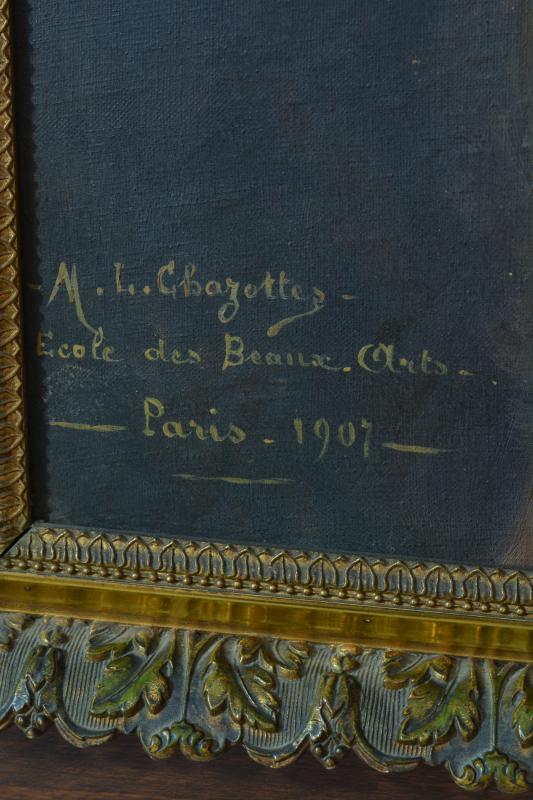 - M. L. Chazottes -
Ecole des Beaux. Arts -
— Paris - 1907 —